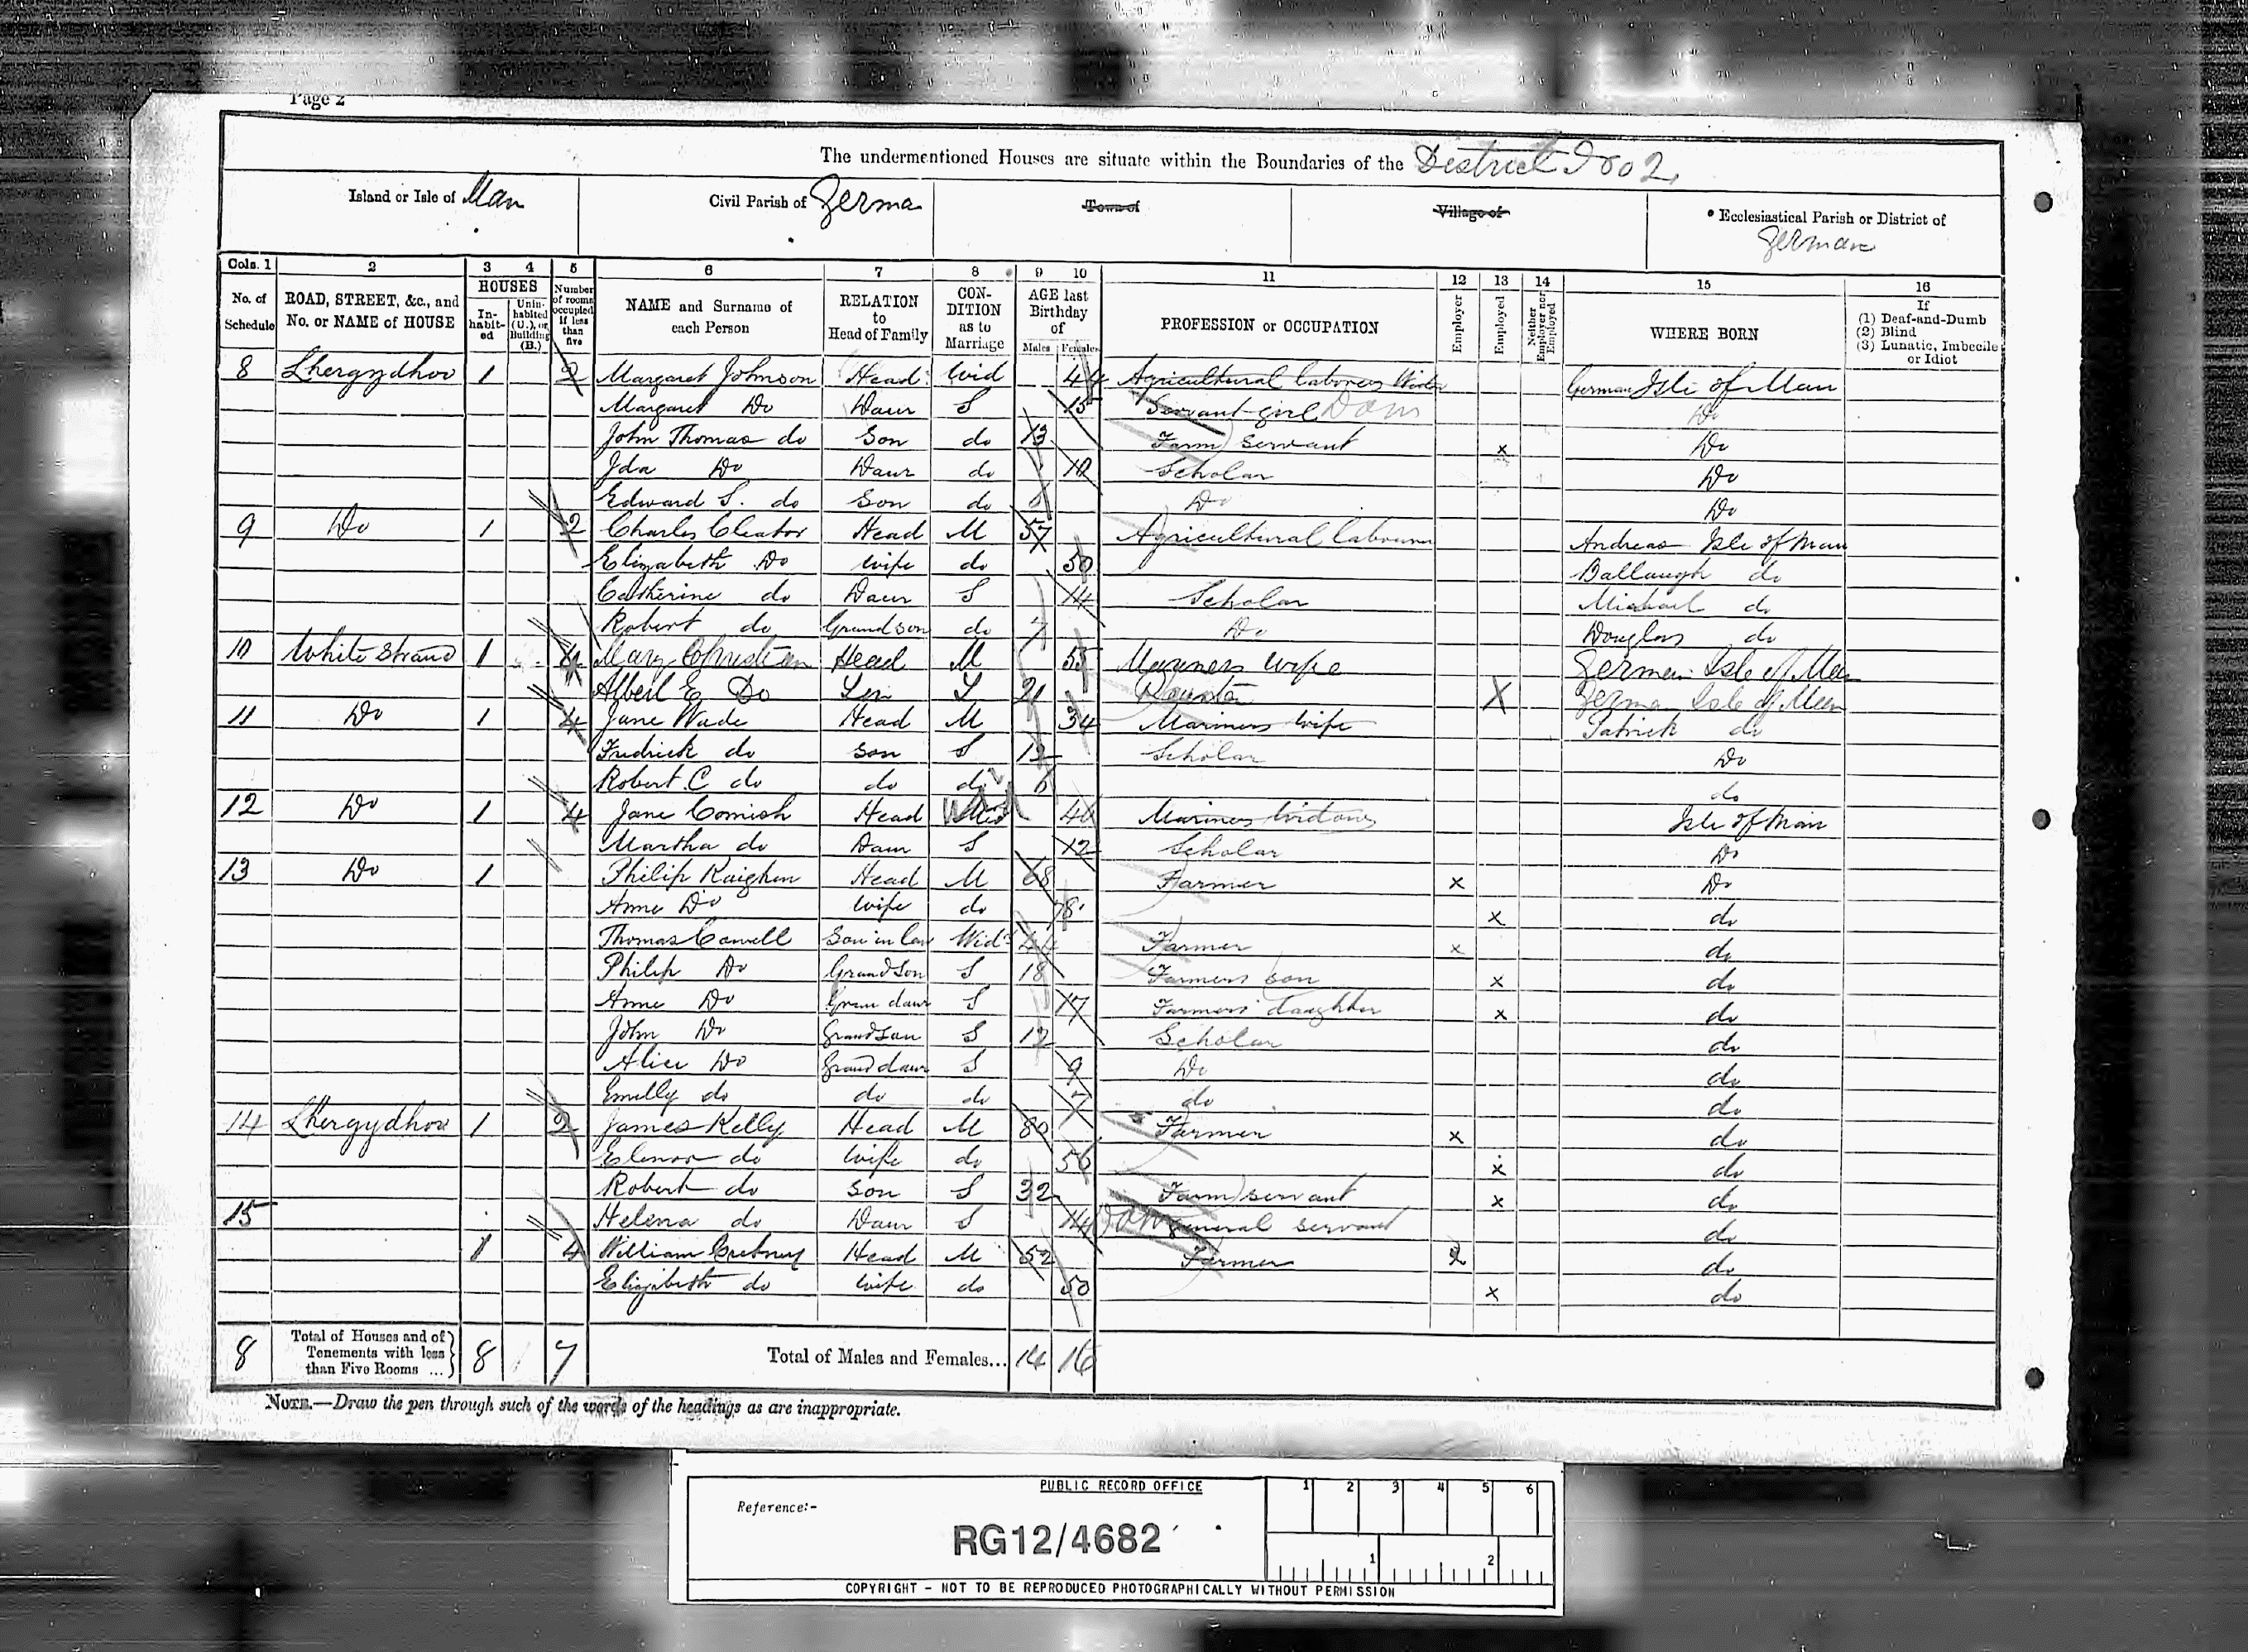 Page 2
The undermentioned Houses are situate within the Boundaries of the District No 2
Island or Isle of Man Civil Parish of Germa Town of Village of Ecclesiastical Parish or District of German
Cols. 1 2 3 4 5 6 7 8 9 10 11 12 13 14 15 16
No. of Schedule ROAD, STREET, &c., and No. or NAME of HOUSE HOUSES Inhabited Uninhabited (U.), or Building (B.) Number of rooms occupied if less than five NAME and Surname of each Person RELATION to Head of Family CONDITION as to Marriage AGE last Birthday of Males Females PROFESSION or OCCUPATION Employer Employed Neither Employer nor Employed WHERE BORN If (1) Deaf-and-Dumb (2) Blind (3) Lunatic, Imbecile or Idiot
8 Lhergydhoo 1 2 Margaret Johnson Head Wid 44 Agricultural labourers Widow German Isle of Man
Margaret Do Daur S 15 Servant girl Dom Do
John Thomas do Son do 13 Farm servant x Do
Ida Do Daur do 10 Scholar Do
Edward S. do Son do Do Do
9 Do 1 2 Charles Cleator Head M 57 Agricultural labourer Andreas Isle of Man
Elizabeth Do wife do 50 Ballaugh do
Catherine do Daur S 14 Scholar Michael do
Robert do Grandson do 7 Do Douglas do
10 White Strand 1 4 Mary Christian Head M 55 Mariners wife German Isle of Man
Albert E Do Son S 21 X German Isle of Man
11 Do 1 4 Jane Wade Head M 34 Mariners wife Patrick do
Fredrick do son S 12 Scholar Do
Robert C do do do 6 do
12 Do 1 4 Jane Cornish Head Wid 46 Mariners Widow Isle of Man
Martha do Daur S 12 Scholar Do
13 Do 1 Philip Kaighen Head M 68 Farmer x Do
Anne Do wife do 78 x do
Thomas Cowell Son in law Widr 44 Farmer x do
Philip Do Grandson S 18 Farmers son x do
Anne Do Gran daur S 17 Farmers daughter x do
John Do Grandson S 12 Scholar do
Alice Do Grand daur S 9 Do do
Emilly do do do 7 do do
14 Lhergydhoo 1 2 James Kelly Head M 80 Farmer x do
Elenor do wife do 56 x do
Robert do son S 32 Farm servant x do
15 Helena do Daur S 14 Dom General servant do
1 4 William Gretney Head M 52 Farmer x do
Elizabeth do wife do 50 x do
8 Total of Houses and of Tenements with less than Five Rooms ... 8 7 Total of Males and Females... 14 16
NOTE.—Draw the pen through such of the words of the headings as are inappropriate.
PUBLIC RECORD OFFICE 1 2 3 4 5 6
Reference:-
RG12/4682
1 2
COPYRIGHT - NOT TO BE REPRODUCED PHOTOGRAPHICALLY WITHOUT PERMISSION